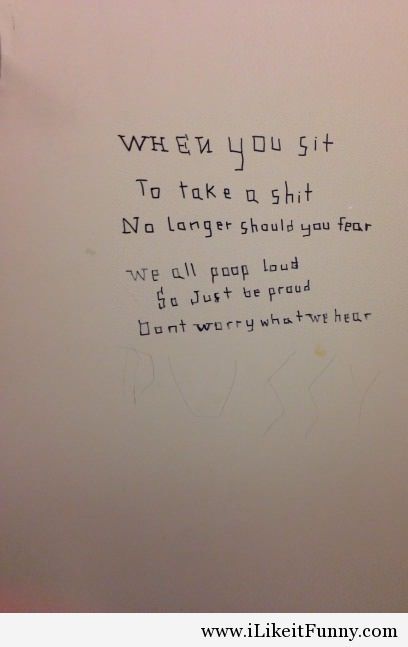 WHEN you sit
To take a shit
No longer should you fear
We all poop loud
So Just be proud
Dont worry what we hear
PUSSY
www.iLikeitFunny.com